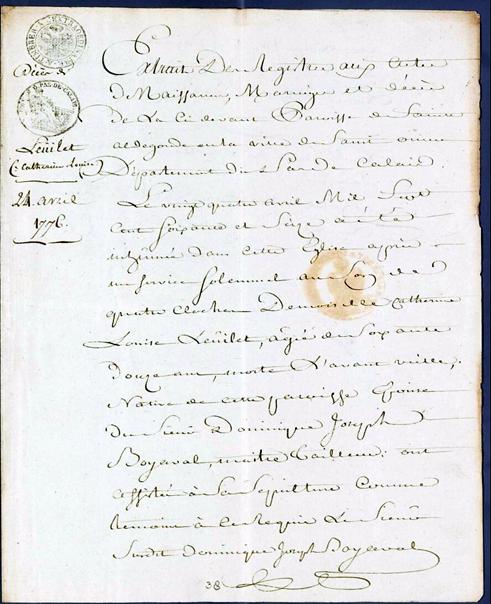 décès de
Leüilet
(Catherine Louise)
24 avril
1776
Extrait Des Registres aux actes
de Naissance, Mariage et décès
de La Cidevant Paroisse de Sainte
aldegonde en la ville de Saint omer
Département du Pas de Calais.
Le vingt quatre avril Mil Sept
Cent Soixante et Seize a été
inhumée dans cette Eglise après
un Service Solemnel au Son de
quatre cloches Demoiselle Catherine
Louise Leüilet, agée de Soixante
Douze ans, morte L'avant veille,
Native de cette paroisse Epouse
du Sieur Dominique Joseph
Boyaval, maitre tailleur: ont
assisté à La Sepulture comme
temoins à ce Requis Le Sieur
Susdit Dominique Joseph Boyaval
38